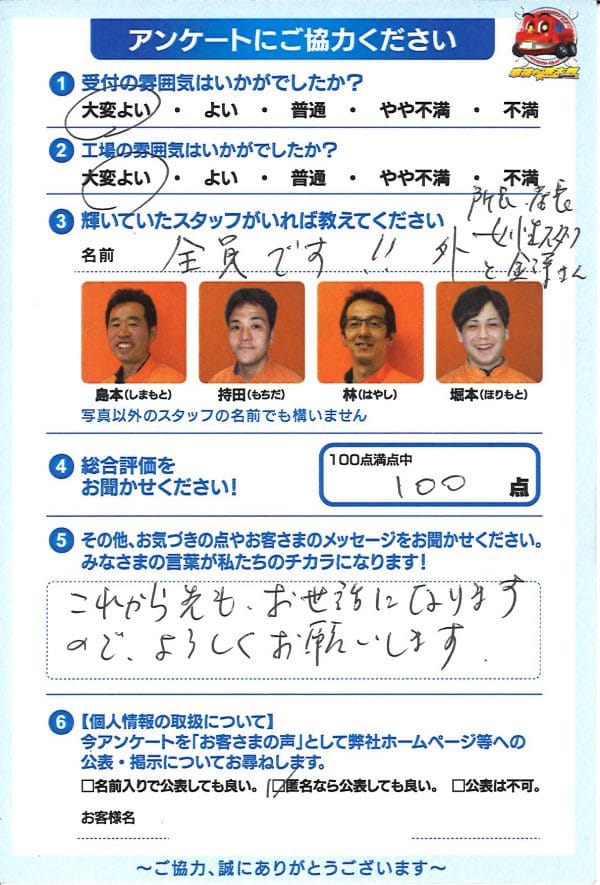 アンケートにご協力ください
1 受付の雰囲気はいかがでしたか？
大変よい ・ よい ・ 普通 ・ やや不満 ・ 不満
2 工場の雰囲気はいかがでしたか？
大変よい ・ よい ・ 普通 ・ やや不満 ・ 不満
3 輝いていたスタッフがいれば教えてください
所長 店長
名前 全員です!! 外 女性スタッフ
と金澤さん
島本(しまもと) 持田(もちだ) 林(はやし) 堀本(ほりもと)
写真以外のスタッフの名前でも構いません
4 総合評価を
お聞かせください！
100点満点中
100 点
5 その他、お気づきの点やお客さまのメッセージをお聞かせください。
みなさまの言葉が私たちのチカラになります！
これから先も、お世話になります
ので、よろしくお願いします.
6 【個人情報の取扱について】
今アンケートを「お客さまの声」として弊社ホームページ等への
公表・掲示についてお尋ねします。
□名前入りで公表しても良い。 ☑匿名なら公表しても良い。 □公表は不可。
お客様名
～ご協力、誠にありがとうございます～